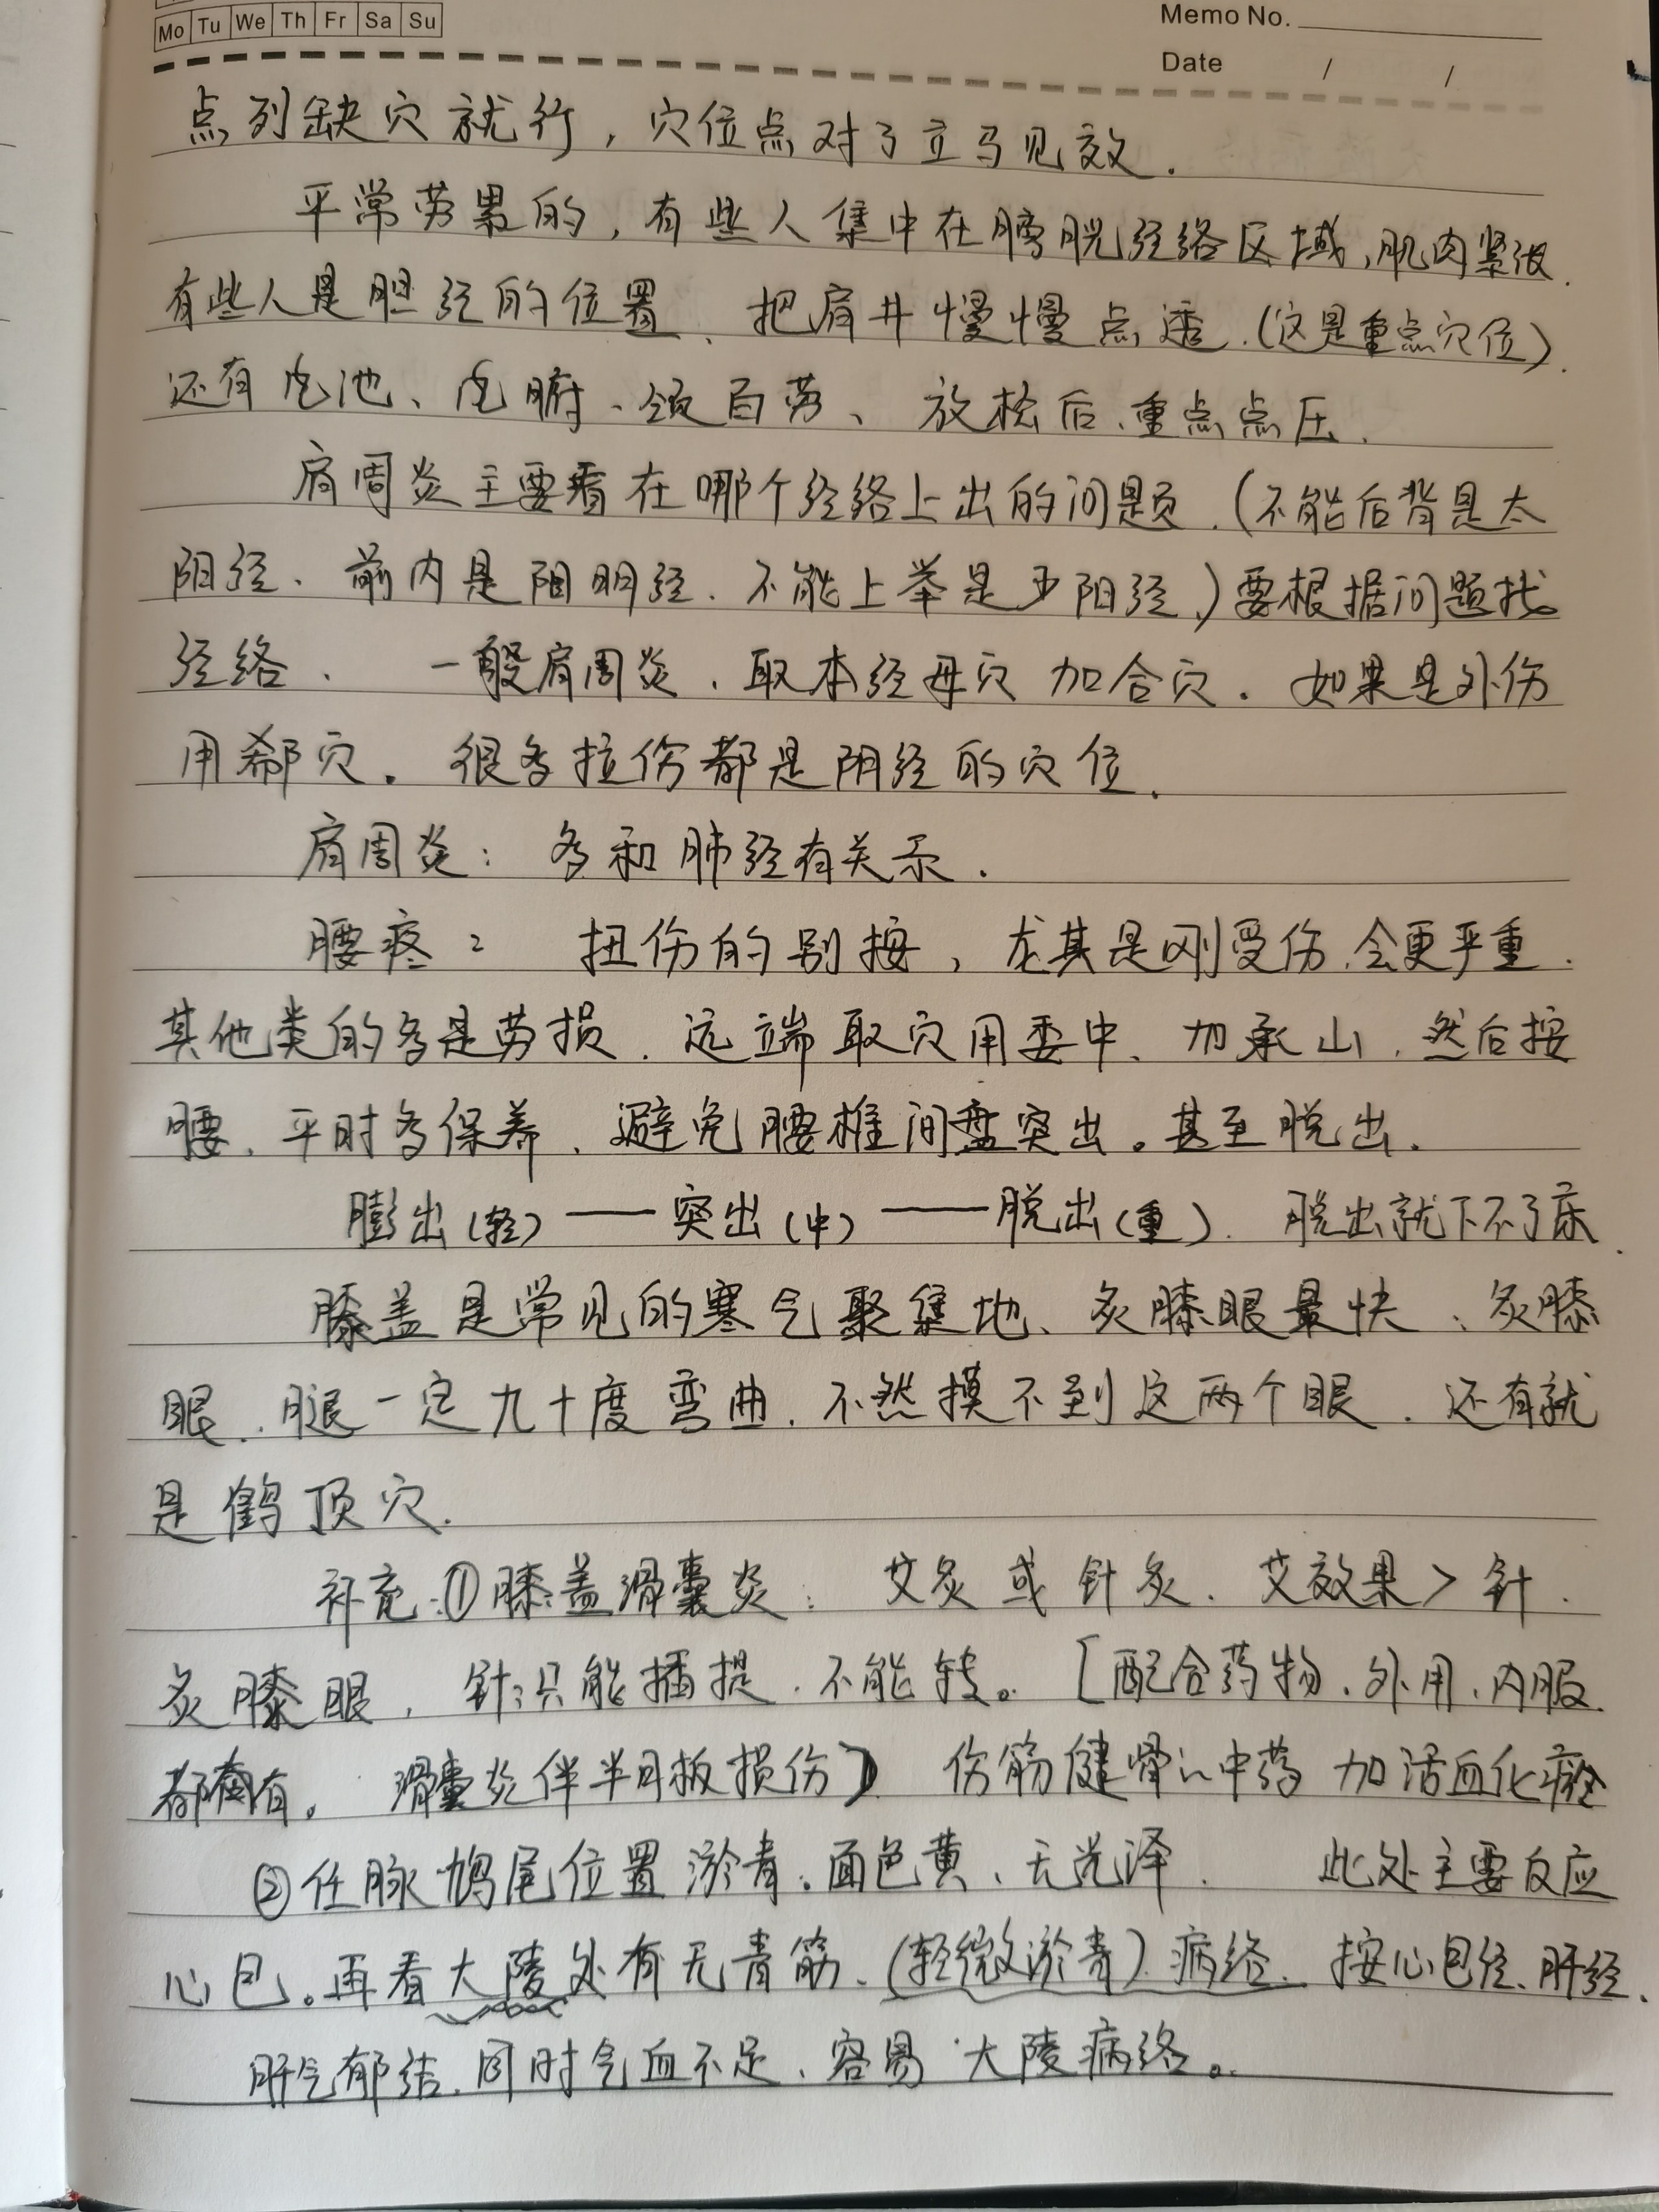 Mo Tu We Th Fr Sa Su
Memo No.
Date / /
点列缺穴就行，穴位点对了立马见效.
平常劳累的，有些人集中在膀胱经络区域，肌肉紧张.
有些人是胆经的位置、把肩井慢慢点透.(这是重点穴位).
还有 池、 腑、颈百劳、放松后、重点点压.
肩周炎主要看在哪个经络上出的问题.(不能后背是太
阳经、前内是阳明经.不能上举是少阳经、)要根据问题找
经络. 一般肩周炎.取本经母穴 加合穴. 如果是外伤
用郄穴。很多拉伤都是阴经的穴位.
肩周炎: 多和肺经有关系.
腰疼: 扭伤的别按，尤其是刚受伤.会更严重.
其他类的多是劳损.远端取穴用委中、加承山.然后按
腰.平时多保养、避免腰椎间盘突出。甚至脱出.
膨出(轻)——突出(中)——脱出(重). 脱出就下不了床.
膝盖是常见的寒气聚集地、灸膝眼最快、灸膝
眼.腿一定九十度弯曲.不然摸不到这两个眼.还有就
是鹤顶穴.
补充:①膝盖滑囊炎: 艾灸或针灸.艾效果>针.
灸膝眼，针:只能插提.不能转。[配合药物.外用.内服.
都有。滑囊炎伴半月板损伤] 伤筋健骨的中药 加活血化瘀
②任脉鸠尾位置淤青.面色黄、无光泽. 此处主要反应
心包。再看大陵处有无青筋、(轻微淤青).病络. 按心包经、肝经.
肝气郁结.同时气血不足、容易大陵病络。